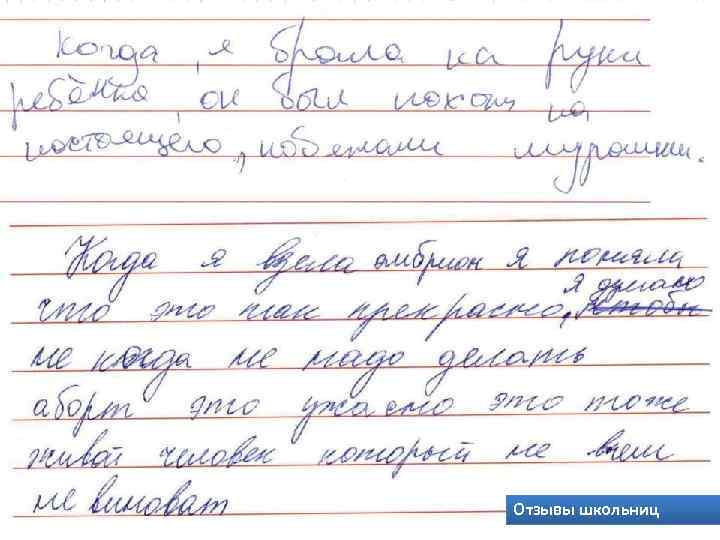 Когда, я брала на руки
ребёнка, он был похож на
настоящего, побежали мурашки.
Когда я взела эмбрион я поняла
что это так прекрасно, я думаю
не когда не надо делать
аборт это ужасно это тоже
живой человек который не в чем
не виноват
Отзывы школьниц